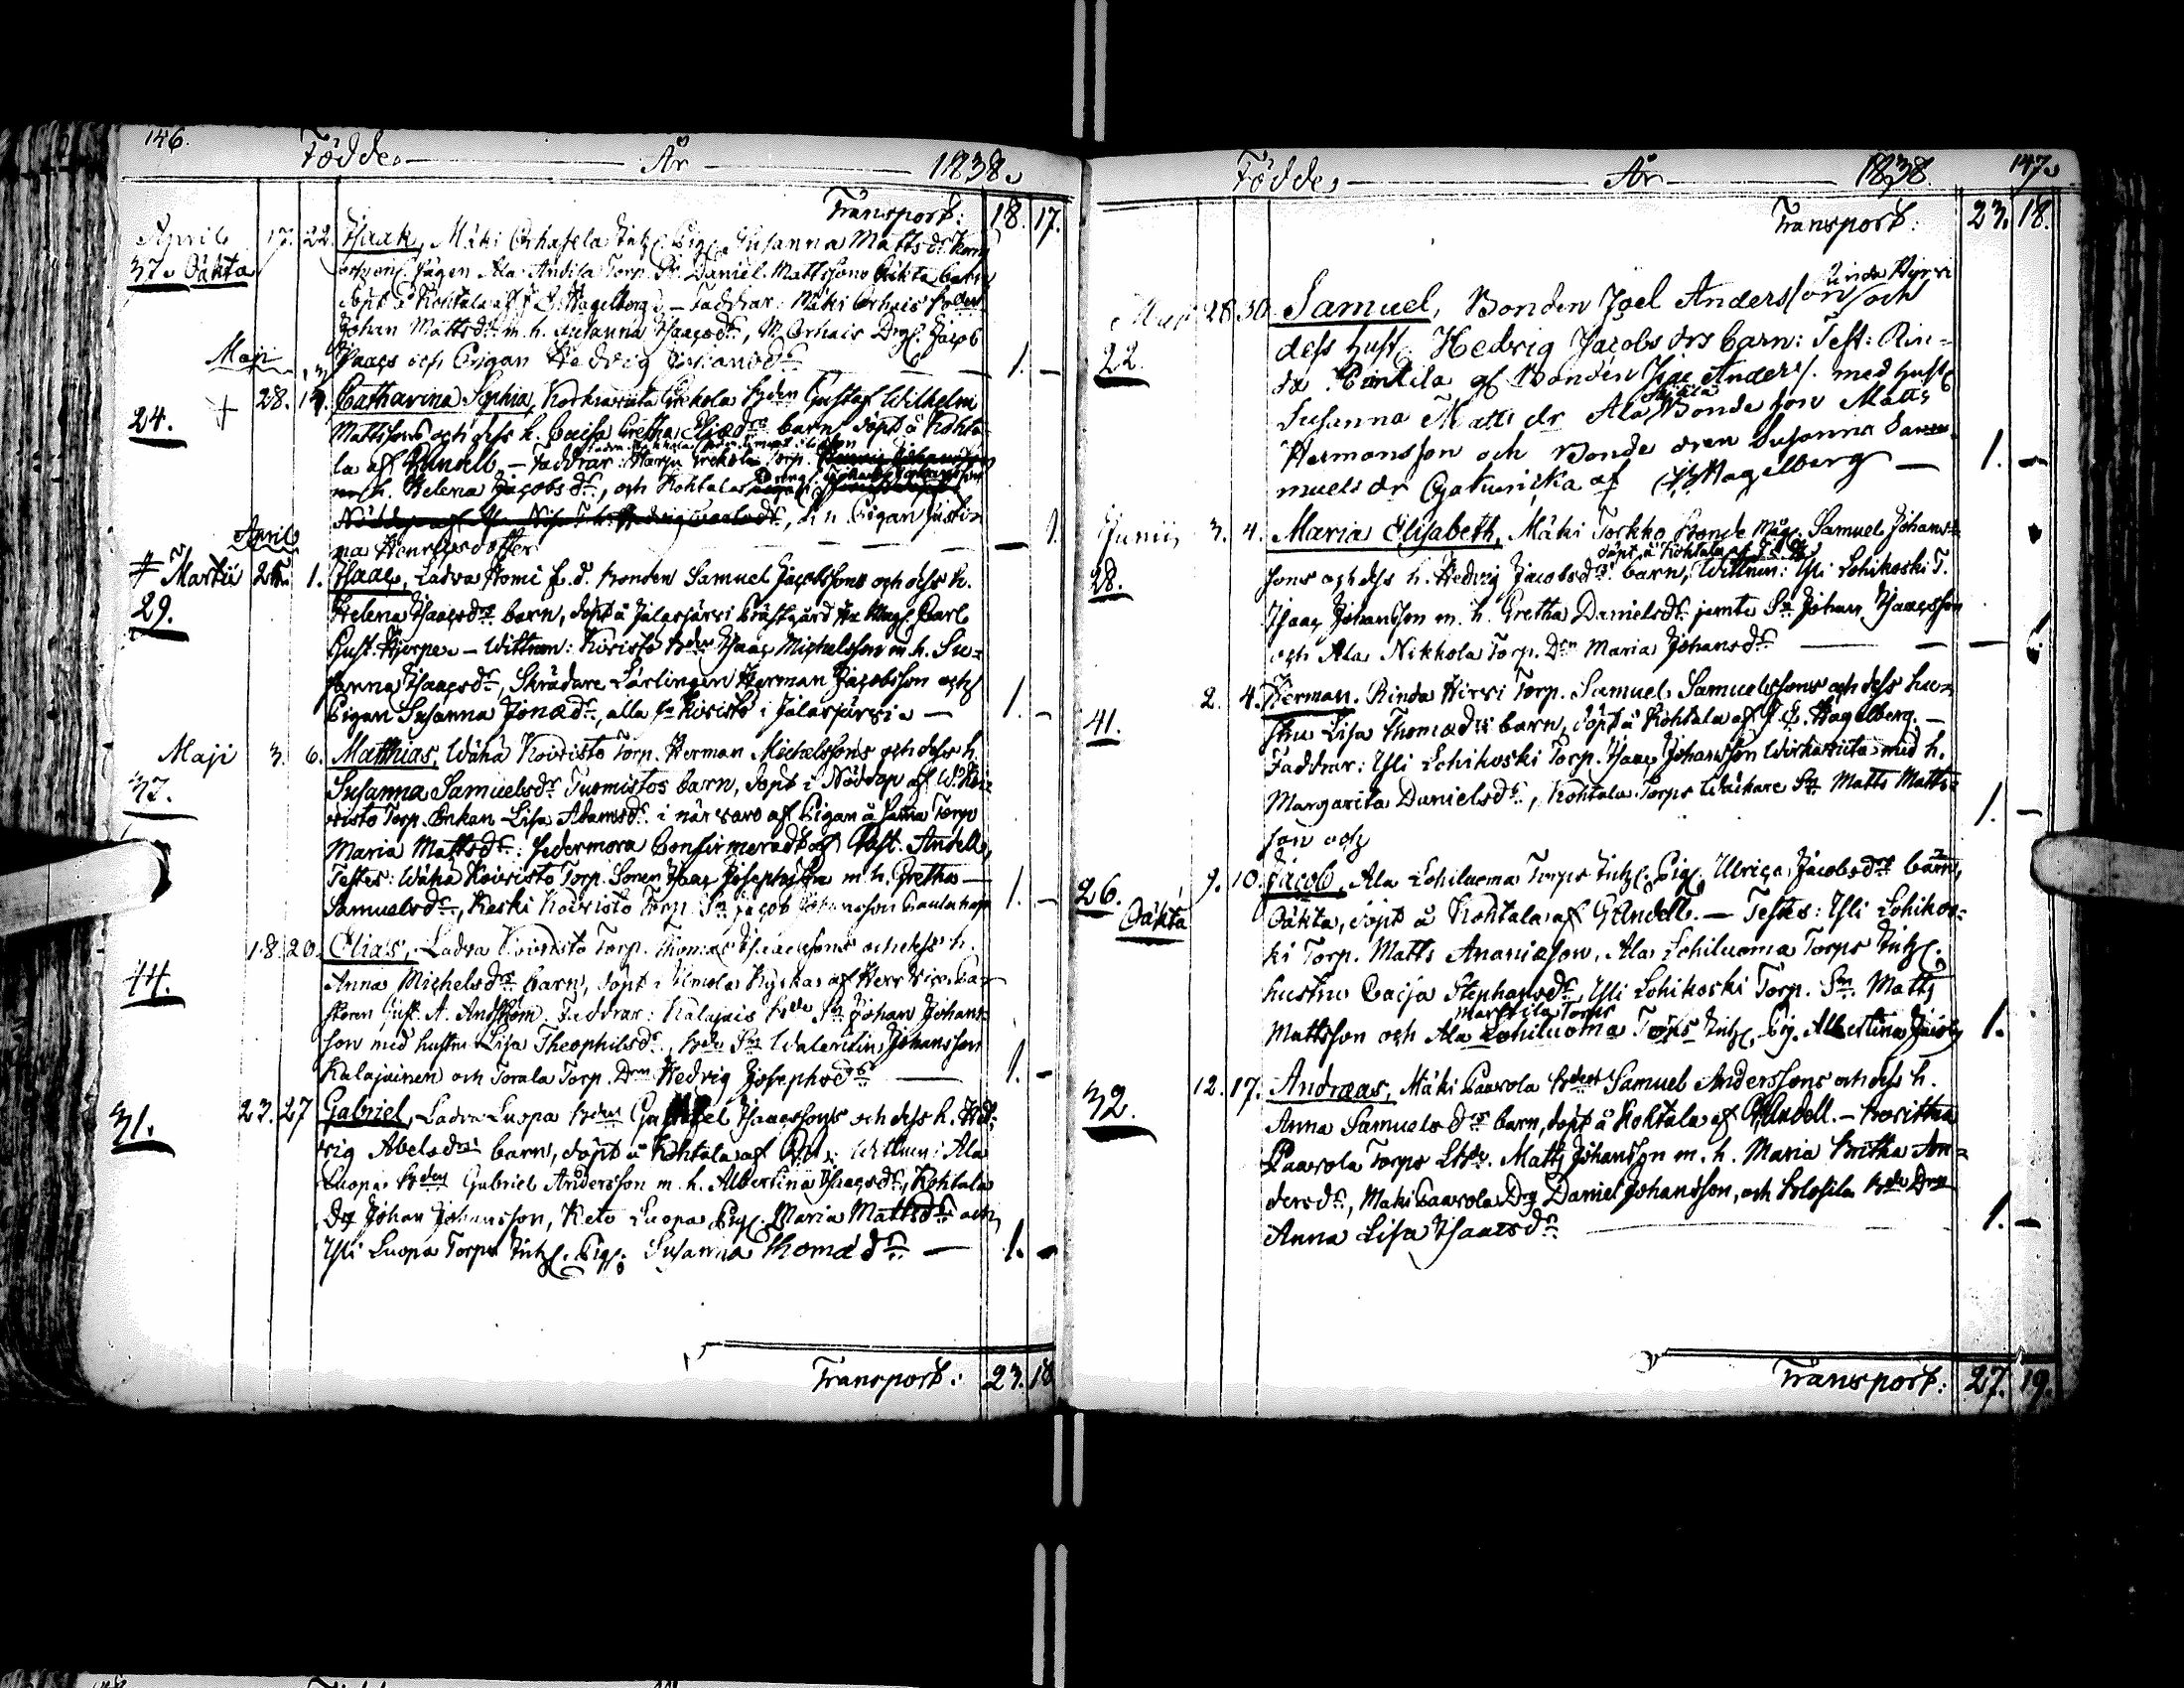 146.
Födde, År 1838.
Transport: 18. 17.
April 17. 22. Isaak, Mäki Orhasela Inh. Pig. Susanna Matts dr
Ala Antila Torp. Daniel Mattssons Oäkta barn,
37. Oäkta
döpt å Kohtala af J. E. Hagelberg. — Faddrar: Mäki Orhais
Johan Matts m. h. Susanna Isaacsdr, M. Orhais Drg. Jacob
Isaacs och Pigan Hedvig Johansdr — 1. —
Maji
28. Catharina Sophia, Grekola Bden Gustaf Wilhelm
24. +
Mattssons och dess h. Caisa Gretha barn, döpt å Kohta-
la af Andell. — Faddrar: Harju Grekola Torp.
m. h. Helena Jacobsdr, och Kohtala
Pigan Justi-
na Henricsdotter — — 1.
April
# Martii 25. 1. Isaac, Ladva Homi f. d. Bonden Samuel Jacobssons och dess h.
29.
Helena Isaacsdrs barn, döpt å Jalasjärvi Prästgård Carl
Gust. — Wittnen: Koivisto Isaac Michelsson m. h. Su-
sanna Isaacsdr, Skrädare Lärlingen Herman Jacobsson och
Pigan Susanna Jonædr, alla fr Koivisto i Jalasjärvi. — 1. —
Maji 3. 6. Matthias, Wäha Koivisto Torp. Herman Michelssons och dess h.
37.
Susanna Samuelsdr Tuomistos barn, döpt i Nöddop af W. Koi-
visto Torp. Enkan Lisa Adamsdr i närvaro af Pigan å samma Torp
Maria Mattsdr: sedermera Confirmeradt af Past. Andell,
Testes: Wäha Koivisto Torp. Sonen Isaac Josephsson m. h. Gretha
Samuelsdr, Keski Koivisto Torp. Sn Jacob Johansson 1. —
18. 20. Elias, Ladva Koivisto Torp. Thomas Isaacssons och dess h.
44.
Anna Michelsdrs barn, döpt i Ilmola Kyrka af Herr Vice Pa-
storen Gust. A. Andström. Faddrar: Kalajais Bde Sn Johan Johans-
son med hustru Lisa Theophilsdr, Bde Sn Walentin Johansson
Kalajainen och Torala Torp. Drn Hedvig Josephsdr — 1. —
23. 27 Gabriel, Ladva Luopa Bden Gabriel Isaacssons och dess h. Hed-
31.
vig Abelsdrs barn, döpt å Kohtala af Wittnen: Ala
Luopa Bden Gabriel Andersson m. h. Albertina Isaacsdr, Kohtala
Drg Johan Johansson, Keto Luopa Pig. Maria Mattsdr och
Yli Luopa Torps Inh. Pig. Susanna Thomædr — 1. —
Transport: 23. 18
147.
Födde, År 1838.
Transport: 23. 18.
Rinda Hirvi
28 30 Samuel, Bonden Joel Andersson och
22.
dess hust. Hedvig Jacobs drs barn: Test: Rin-
da Pentila Bonden Isac Anders. med hust
Susanna Matts dr Ala Bonde son Matts
Hermansson och Bonde dren Susanna Sa-
muels dr af Hagelberg — 1. —
Junii 3. 4. Maria Elisabeth, Mäki Torkko Bonde Måg. Samuel Johans-
28.
döpt å Kohtala af
sons och dess h. Hedvig Jacobsdrs barn, Wittnen: Yli Lohikoski T.
Isaac Johansson m. h. Gretha Danielsdr jemte Sn Johan Isaacsson
och Ala Nikkola Torp. Drn Maria Johansdr — — 1.
2. 4. Herman. Rinda Hirvi Torp. Samuel Samuelssons och dess hu-
41.
stru Lisa Thomædrs barn, döpt å Kohtala af J. E. Hagelberg. —
Faddrar: Yli Lohikoski Torp. Isaac Johansson med h.
Margarita Danielsdr, Kohtala Torps Sn Matts Matts-
son och 1. —
9. 10. Jacob, Ala Lohiluoma Torps Inh. Pig. Ulrica Jacobsdrs barn,
26.
Oäkta
Oäkta, döpt å Kohtala af G. Andell. — Testes: Yli Lohikos-
ki Torp. Matts Ananiæson, Ala Lohiluoma Torps Inh.
hustru Caisa Stephansdr, Yli Lohikoski Torp. Sn. Matts
Marttila Torps
Mattsson och Ala Lohiluoma Torps Inh. Pig. Albertina Jacobs 1.
12. 17. Andræas, Mäki Paavola Bdens Samuel Anderssons och dess h.
32.
Anna Samuelsdrs barn, döpt å Kohtala af G. Andell. —
Paavola Torps Matts Johansson m. h. Maria Britha An-
dersdr, Mäki Paavola Drg Daniel Johansson, och Bde Drn
Anna Lisa Isaacsdr — 1. —
Transport: 27. 19.